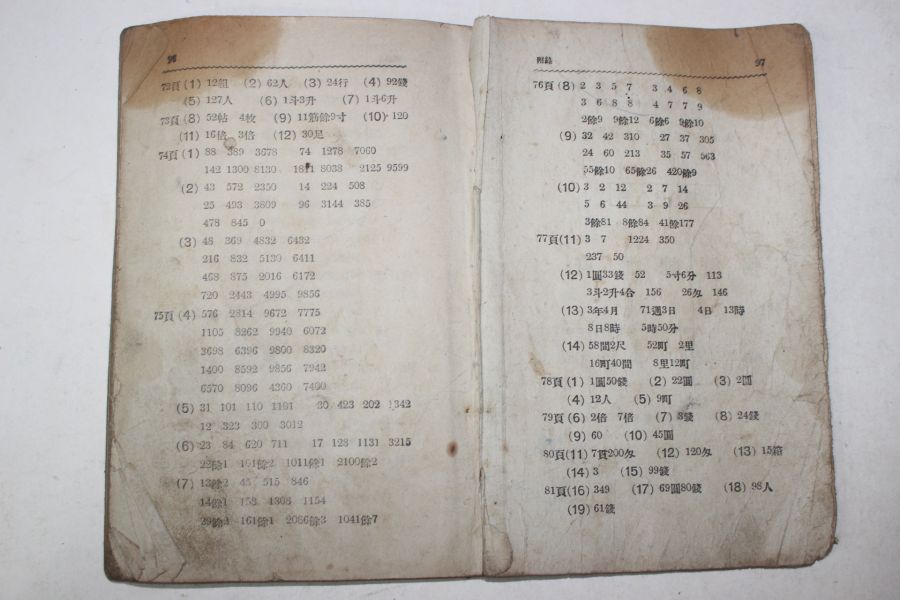 96
72頁(1) 12組 (2) 62人 (3) 24行 (4) 92錢
(5) 127人 (6) 1斗3升 (7) 1斗6升
73頁(8) 52帖 4枚 (9) 11筋餘9寸 (10) 120
(11) 16倍 3倍 (12) 30足
74頁(1) 88 389 3678 74 1278 7060
142 1300 8130 1811 8038 2125 9599
(2) 43 572 2350 14 224 508
25 493 3809 96 3144 385
478 845 0
(3) 48 369 4832 6432
216 832 5139 6411
468 875 2016 6172
720 2443 4995 9856
75頁(4) 576 2814 9672 7775
1105 8262 9940 6072
3698 6396 9800 8320
1400 8592 9856 7942
6570 8096 4360 7400
(5) 31 101 110 1101 30 423 202 1342
12 323 300 3012
(6) 23 84 620 711 17 128 1131 3215
22餘1 101餘2 1011餘1 2100餘2
(7) 13餘2 45 515 846
14餘1 153 1308 1154
29餘2 161餘1 2086餘3 1041餘7
附錄 97
76頁(8) 2 3 5 7 3 4 6 8
3 6 8 8 4 7 7 9
2餘9 9餘12 6餘6 9餘10
(9) 32 42 310 27 37 305
24 60 213 35 57 563
55餘10 65餘26 420餘9
(10) 3 2 12 2 7 14
5 6 44 3 9 26
3餘81 8餘84 41餘177
77頁(11) 3 7 1224 350
237 50
(12) 1圓33錢 52 5寸6分 113
3斗2升4合 156 26匁 146
(13) 3年4月 71週3日 4日 13時
8日8時 5時50分
(14) 58間2尺 52町 2里
16町40間 8里12町
78頁(1) 1圓50錢 (2) 22圓 (3) 2圓
(4) 12人 (5) 9町
79頁(6) 2倍 7倍 (7) 3錢 (8) 24錢
(9) 60 (10) 45圓
80頁(11) 7貫200匁 (12) 120匁 (13) 15箱
(14) 3 (15) 99錢
81頁(16) 349 (17) 69圓80錢 (18) 98人
(19) 61錢